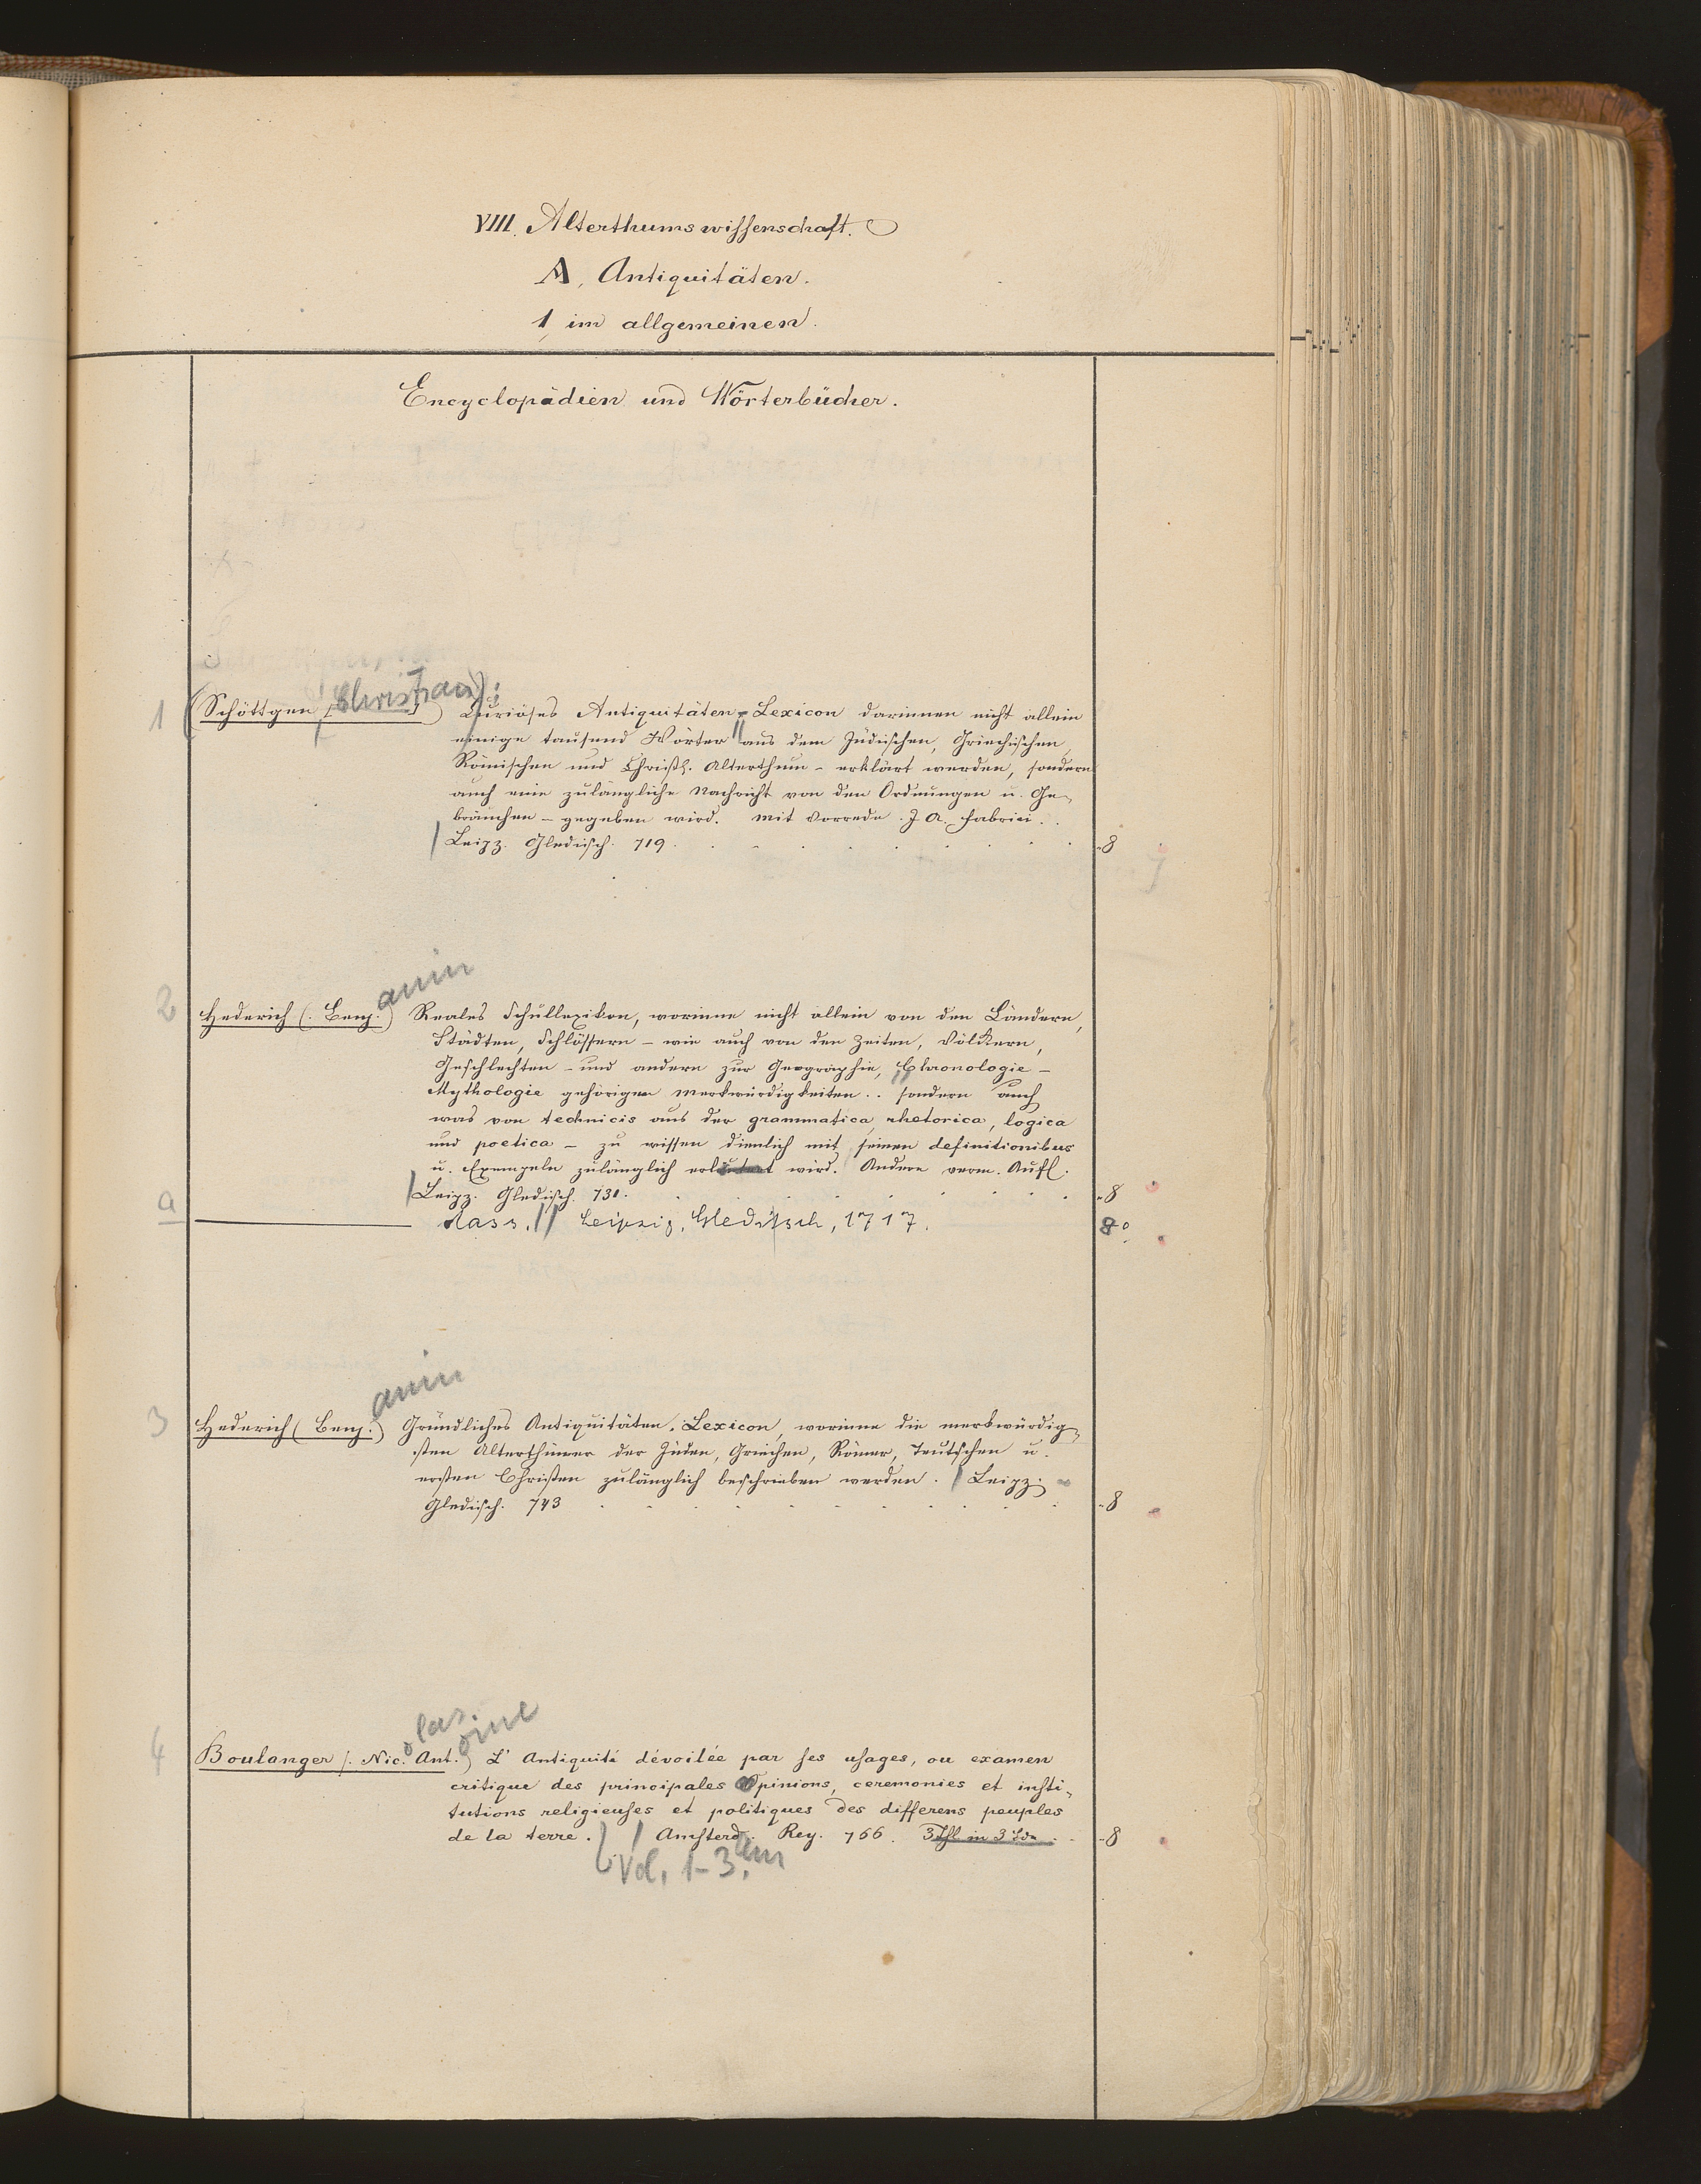 VIII. Alterthumswissenschaft.
A, Antiquitäten.
1, im allgemeinen.
Encyclopädien und Wörterbücher.
1 (Schöttgen [Christian]): Curiöses Antiquitäten-Lexicon darinnen nicht allein
einige tausend Wörter // aus dem Jüdischen, Griechischen,
Römischen und Christl. Alterthum - erklärt werden, sondern
auch eine zulängliche Nachricht von den Ordnungen u. Ge-
bräuchen - gegeben wird. Mit Vorrede J. A. Fabrici.
Leipz. Gleditsch. 719. 8
2 Hederich (. Benj.) amin Reales Schullexikon, worinne nicht allein von den Ländern,
Städten, Schlössern - wie auch von den Zeiten, Völkern,
Geschlechten - und andern zur Geographie, Chronologie -
Mythologie gehörigen Merkwürdigkeiten .. sondern auch
was von technicis aus der grammatica, rhetorica, logica
und poetica - zu wissen dienlich mit seinen definitionibus
u. Exempeln zulänglich erläutert wird. Andere verm. Aufl.
Leipz. Gleditsch. 731. 8
a dass. // Leipzig, Gleditsch, 1717. 8°
3 Hederich (Benj.) amin Gründliches Antiquitäten-Lexicon, worinne die merkwürdig-
sten Alterthümer der Jüden, Griechen, Römer, Teutschen u.
ersten Christen zulänglich beschrieben werden. / Leipz.
Gleditsch. 743 8
4 Boulanger (. Nic. olas Ant. oine) L' Antiquité dévoilée par ses usages, ou examen
critique des principales Opinions, ceremonies et insti-
tutions religieuses et politiques des differens peuples
de la terre. / Amsterd. am Rey. 766. 3 Thl in 3 Bde. 8
Vol. 1-3.